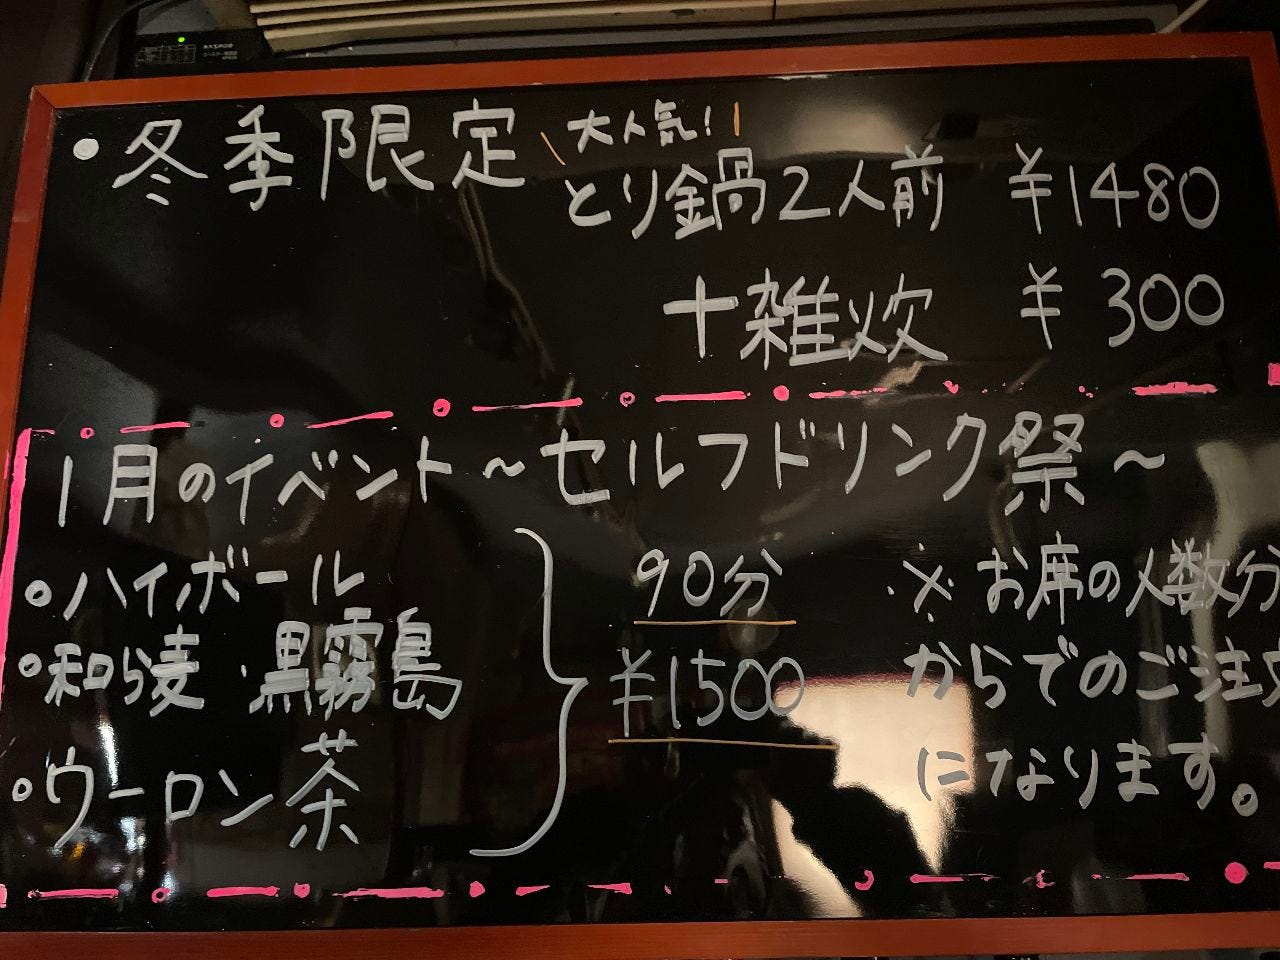 ●冬季限定 大人気!
とり鍋2人前 ¥1480
+雑炊 ¥300
1月のイベント～セルフドリンク祭～
○ハイボール
○和ら麦・黒霧島
○ウーロン茶
90分
¥1500
※お席の人数分
からでのご注文
になります。